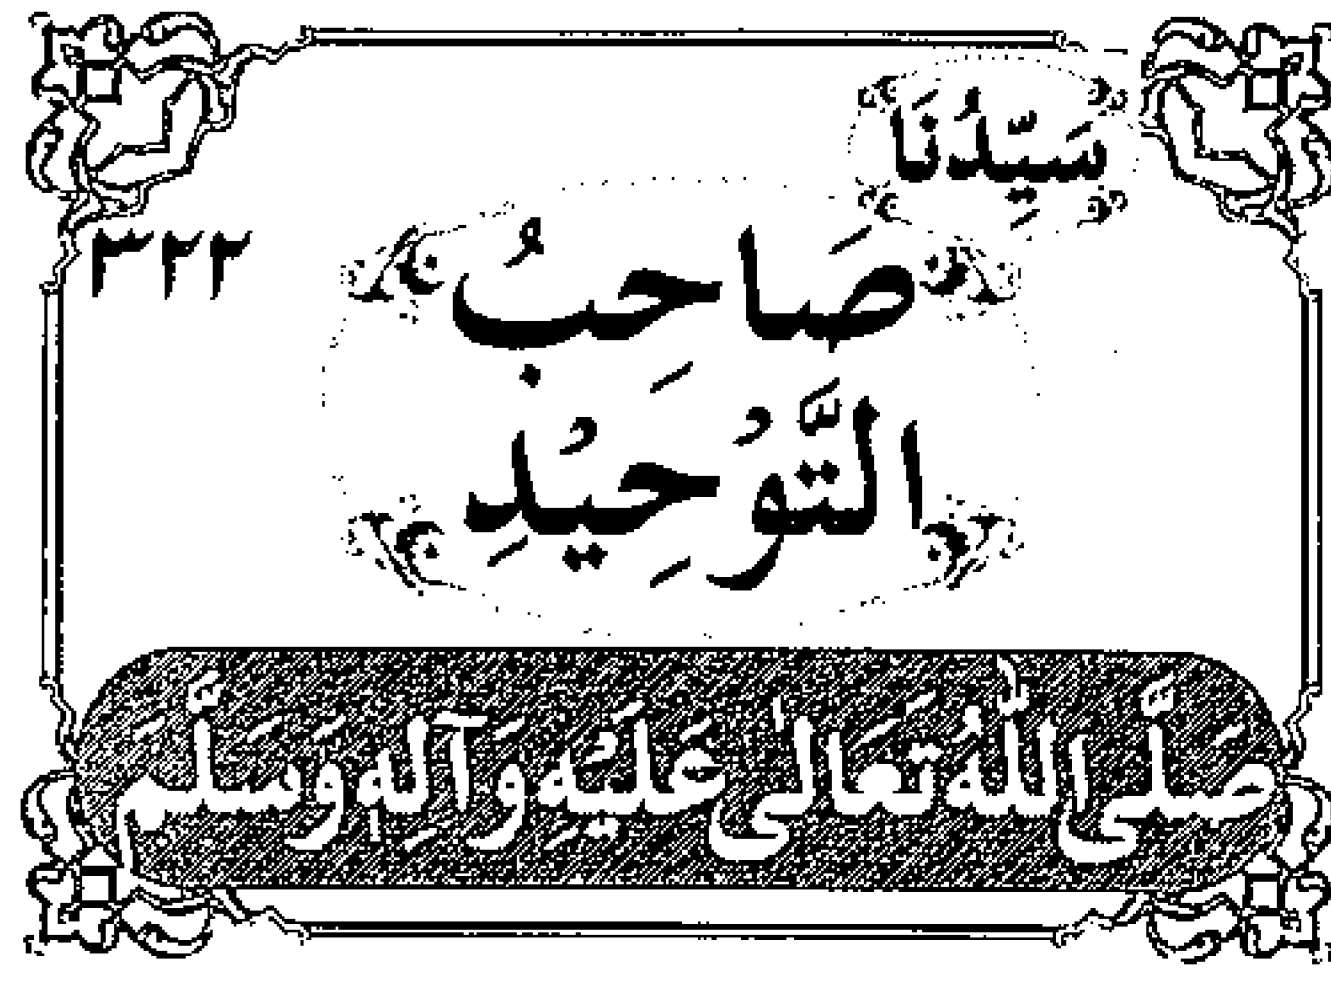 سَيِّدُنَا
٣٢٢
صَاحِبُ
التَّوْحِيْدِ
صَلَّى اللّٰهُ تَعَالٰى عَلَيْهِ وَآلِهٖ وَسَلَّمَ